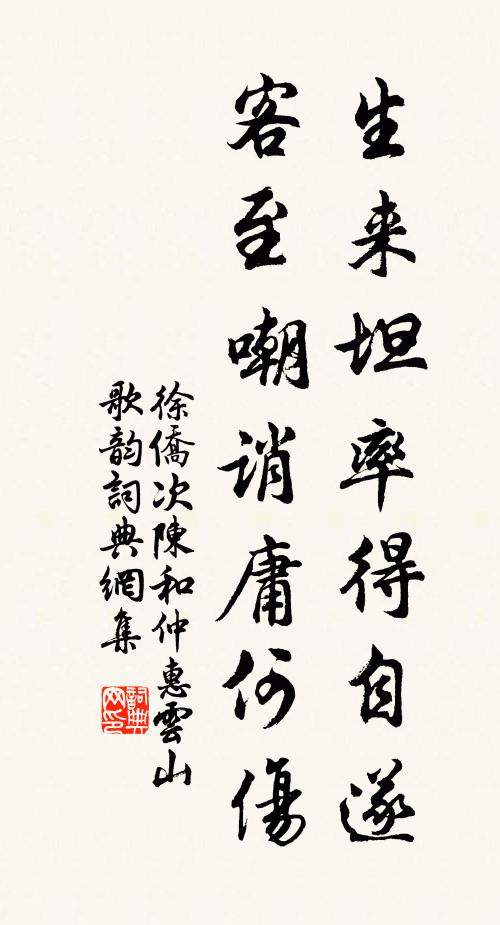 生来坦率得自遂
客至嘲誚庸何傷
徐僑次陳和仲惠雲山
歌韵詞典網集
詞典网印